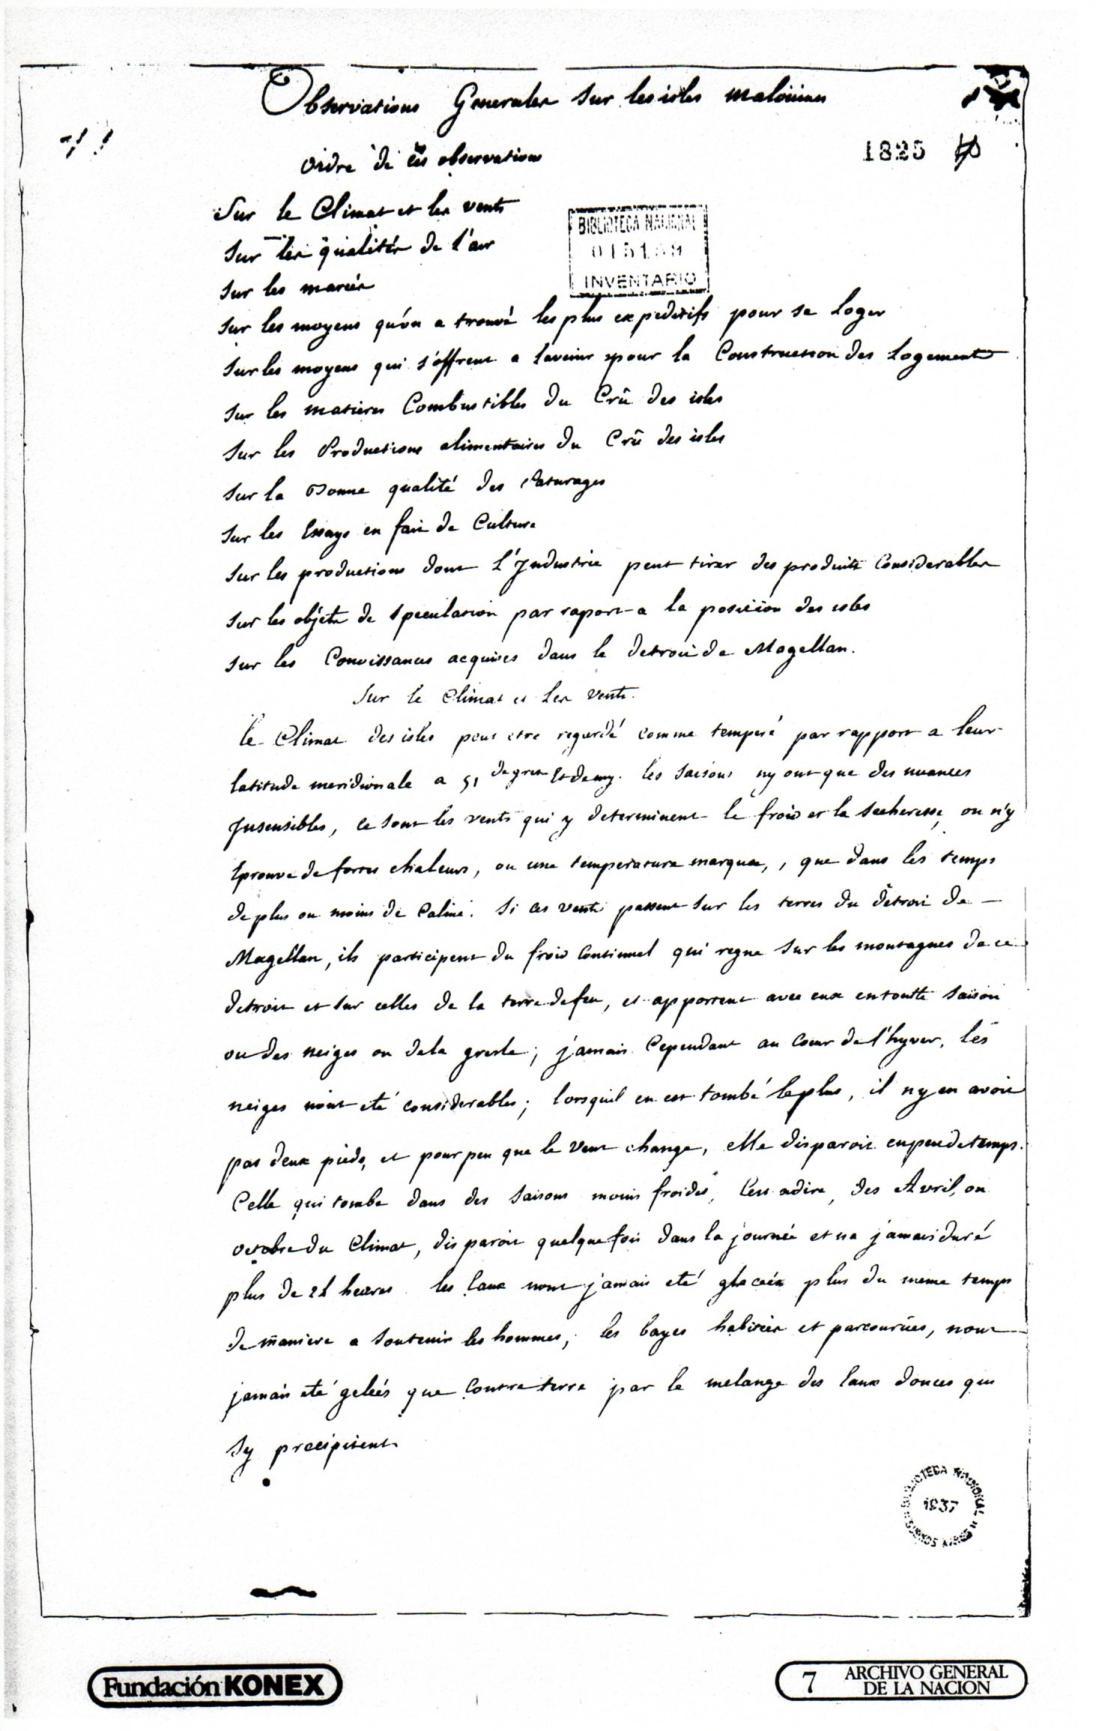 Observations Generales sur les isles malouines
1825
ordre de ces observations
BIBLIOTECA NACIONAL
INVENTARIO
Sur le Climat et les vents
Sur les qualités de l'air
Sur les marées
Sur les moyens qu'on a trouvé les plus expeditifs pour se loger
Sur les moyens qui s'offrent a l'avenir pour la Construction des Logements
Sur les matieres Combustibles du Crû des isles
Sur les Productions alimentaires du Crû des isles
Sur la Bonne qualité des Paturages
Sur les Essays en fait de Culture
Sur les productions dont L'Industrie peut tirer des produits Considerables
Sur les objets de speculation par raport a la position des isles
Sur les Connoissances acquises dans le detroit de Magellan.
Sur le Climat et Les vents.
Le Climat des isles peut etre regardé comme temperé par rapport a leur
latitude meridionale a 51 degres Et demy. les saisons ny ont que des nuances
Insensibles, ce sont les vents qui y determinent le froid et la secheresse, on n'y
Eprouve de fortes chaleurs, ou une temperature marquée, que dans les temps
de plus ou moins de Calme. Si ces vents passent sur les terres du détroit de
Magellan, ils participent du froid Continuel qui regne sur les montagnes de ce
detroit et sur celles de la terre de feu, et apportent avec eux en toutte saison
ou des neiges ou dela gresle; j'amais Cependant au Coeur de l'hyver, les
neiges n'ont eté considerables; lorsquil en est tombé le plus, il ny en avoit
pas deux pieds, et pour peu que le vent change, elle disparoit en peu de temps.
Celle qui tombe dans des saisons moins froides, C'est adire, des Avril, ou
octobre du Climat, disparoit quelque fois dans la journée et na jamais duré
plus de 24 heures. les Eaux nont jamais eté glacées plus du meme temps
de maniere a soutenir les hommes, les bayes habitées et parcourües, nont
jamais eté gelées que Contre terre par le melange des Eaux douces qui
sy precipitent
BIBLIOTECA NACIONAL
1937
BUENOS AIRES
Fundación KONEX
7
ARCHIVO GENERAL
DE LA NACION